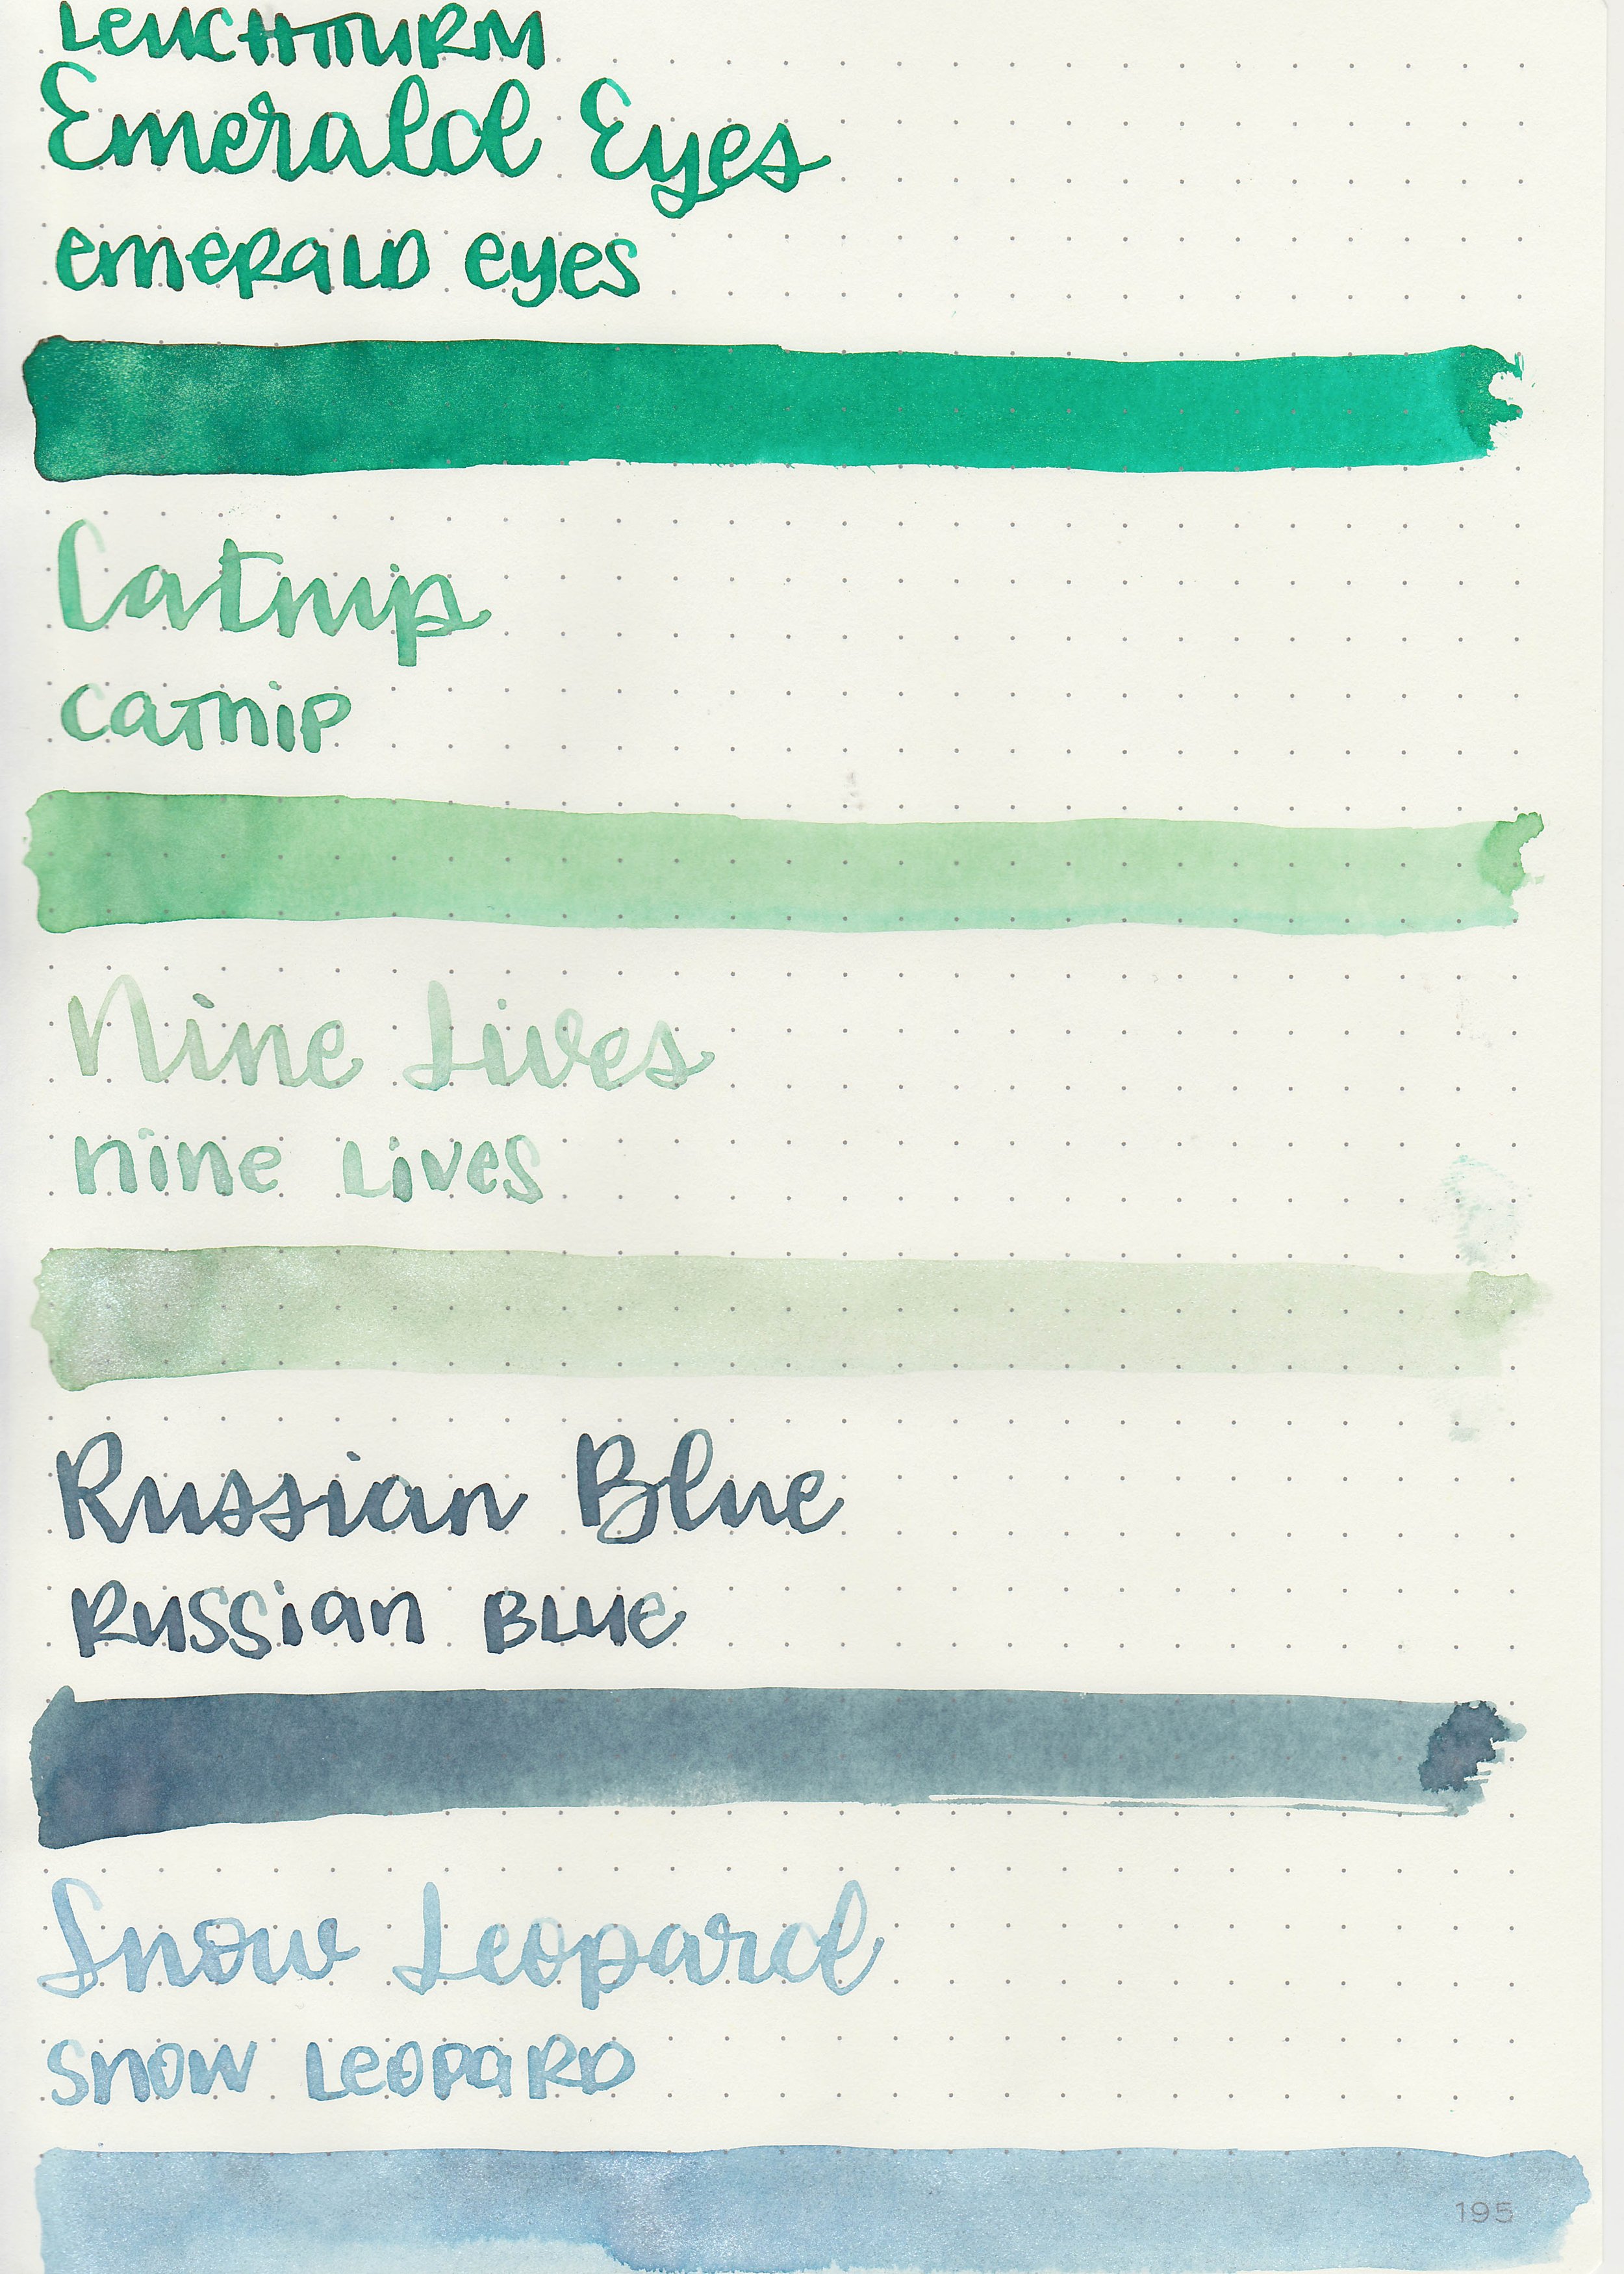 LEUCHTTURM
Emerald Eyes
emerald eyes
Catnip
catnip
Nine Lives
nine lives
Russian Blue
Russian Blue
Snow Leopard
snow leopard
195